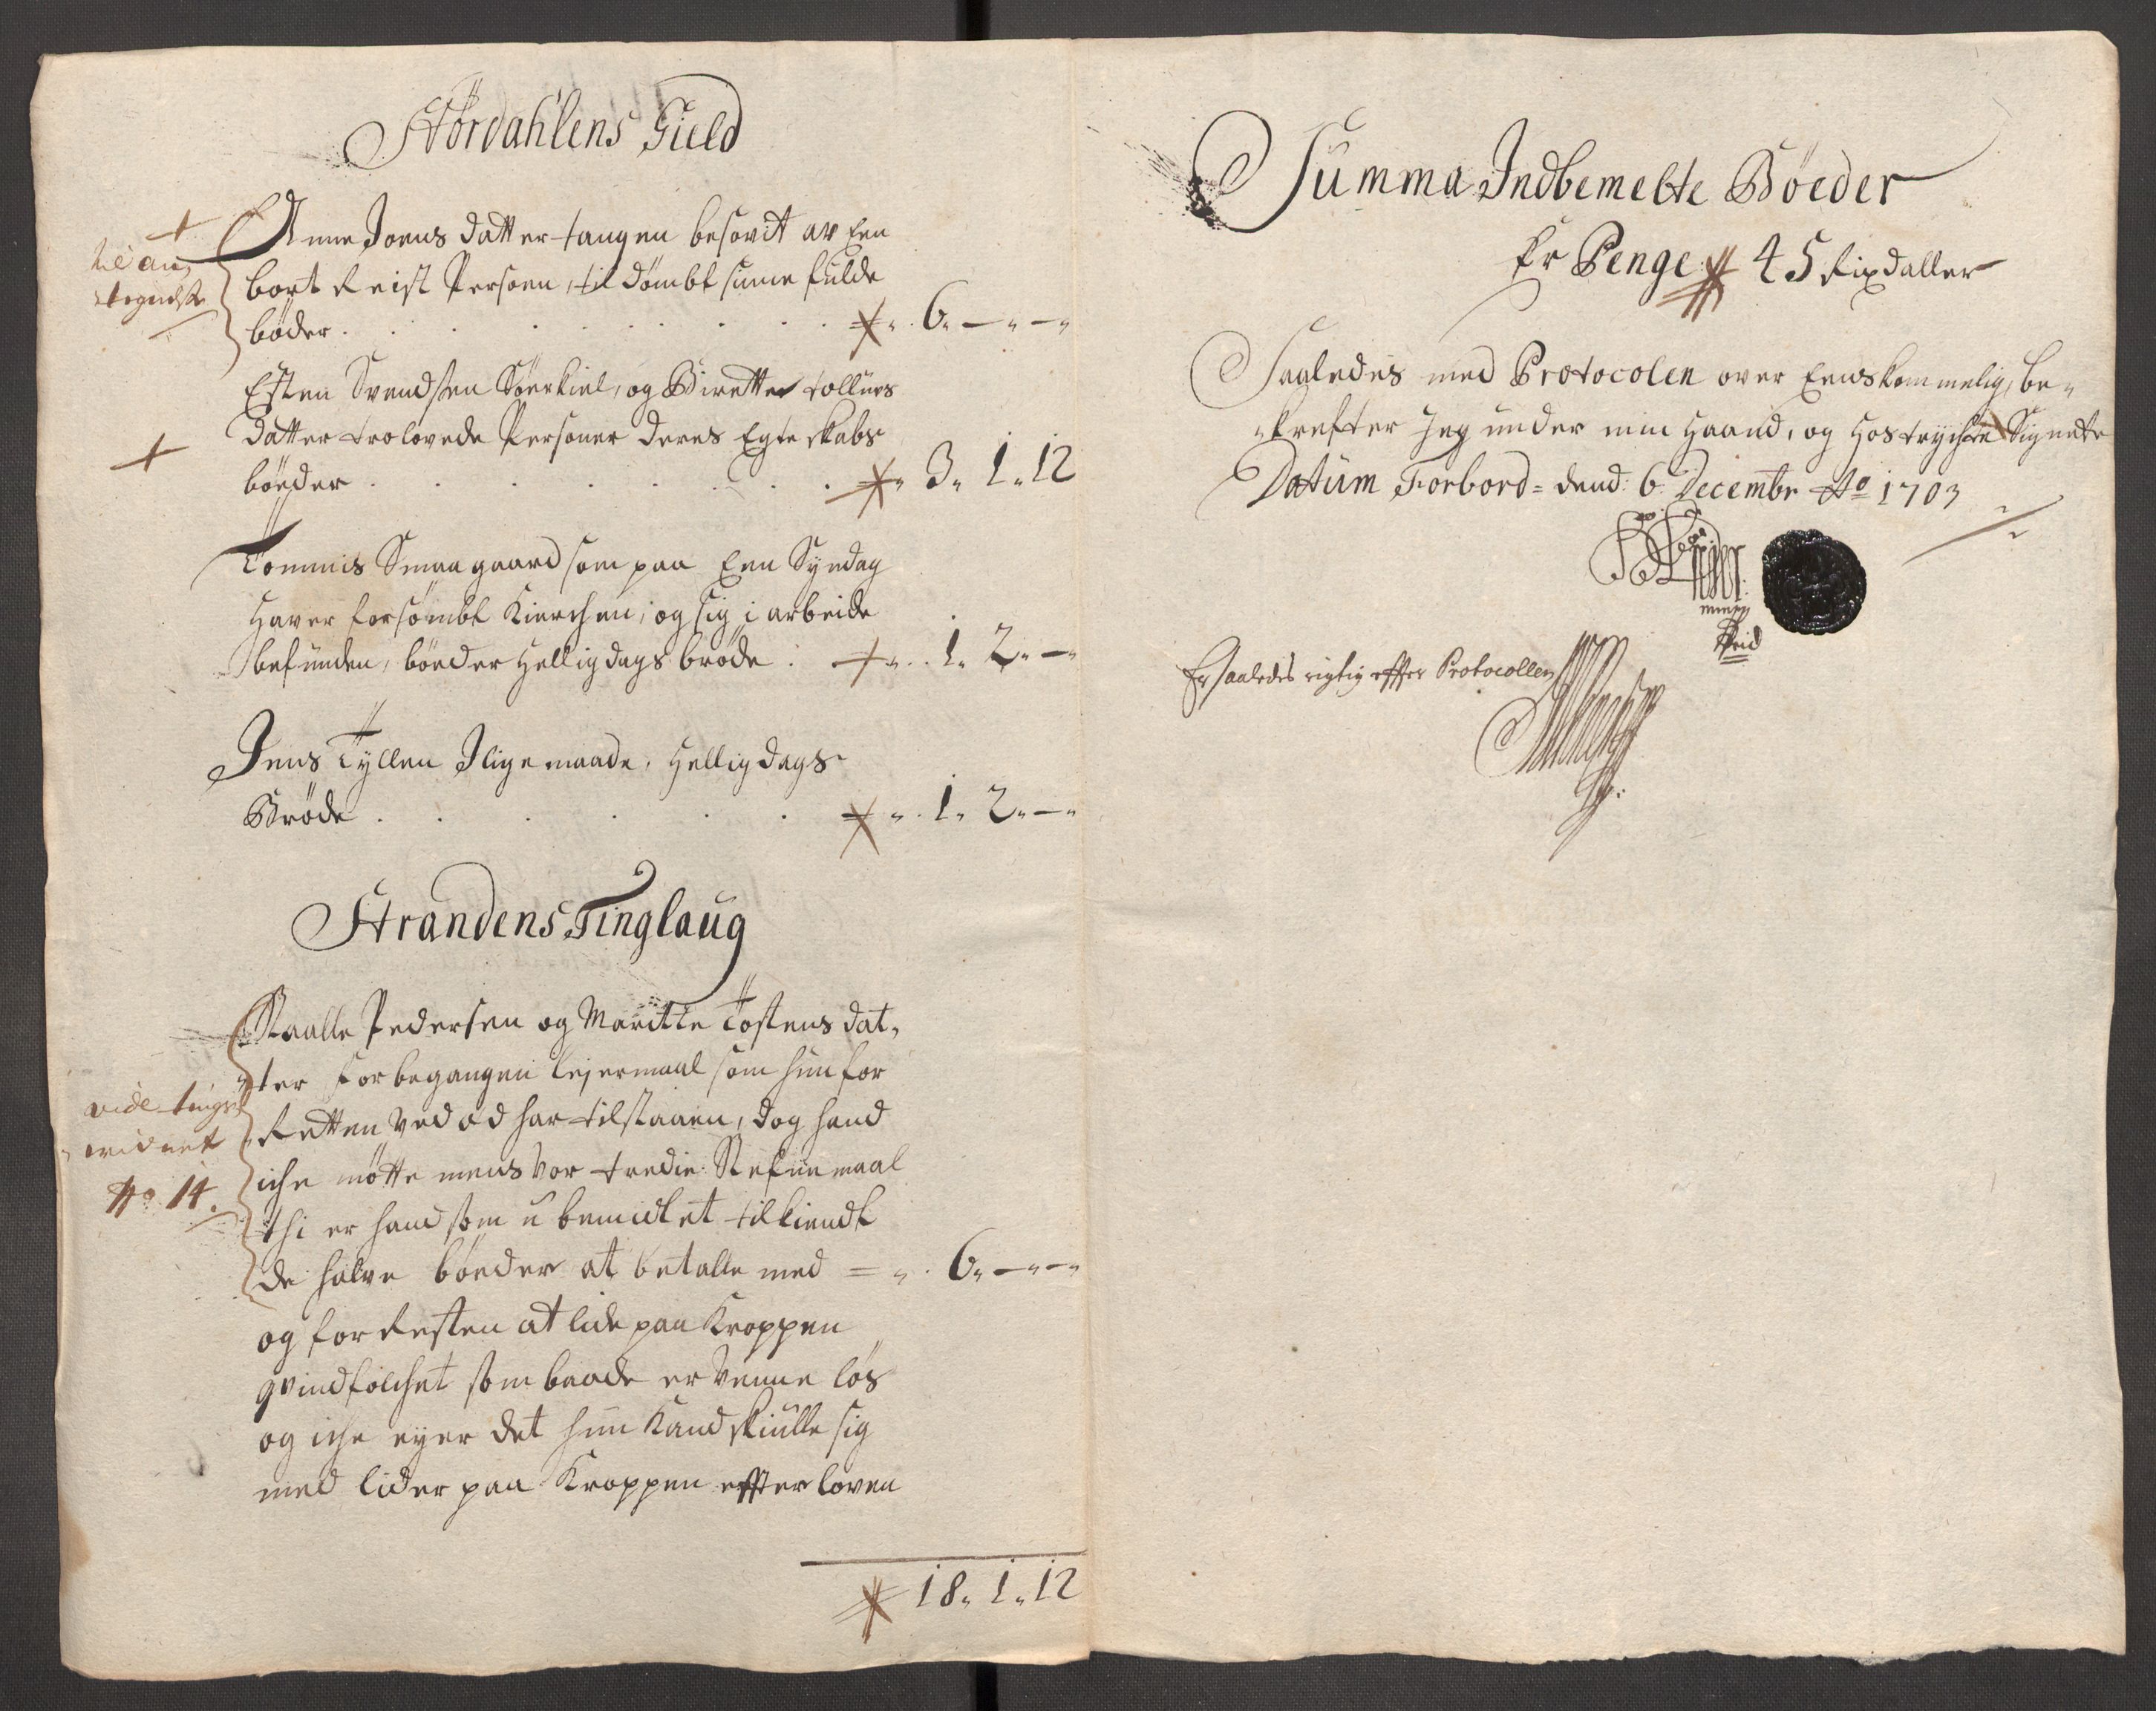 Størdahlens Gield
Anne Joens datter tangen besovit av Een
bort Reist Persoen, til dömbt sinne fulde
böder . . . . . . . . 6. — —
Esten Svendsen Söerkiel, og Birette tollurs
datter trolovede Personer deres Egteskabs
böeder . . . . . . . 3. 1. 12
Tommis Smaagaard som paa Een Syndag
Haver forsömbt Kierchen, og sig i arbeide
befunden, böeder Helligdags bröde . 1. 2. —
Jens Tyllen Ilige maade, Helligdags
Bröde . . . . . . 1. 2. —
Strandens Tinglaug
Staalle Pedersen og Maritte Tostens dat,
ter for begangen lejermaal som hun for
Retten ved æd har tilstaaen, dog hand
iche mötte mens vor tredie Stefnemaal
thi er hand som u bemidlet tilkiendt
de halve böeder at betalle med = 6. — —
og for Resten at lide paa Kroppen
qvindfolchet som baade er venne lös
og iche eyer det hun kand skiulle sig
med lider paa Kroppen effter loven
18. 1. 12
vide tings
widnet
No 14.
Summa Indbemelte Böeder
Er Penge 45 Rixdaller
Saaledes med Protocolen over Eenskommelig, be,
krefter Jeg under min Haand, og Hostrychte Signete
Datum Forbord = dend: 6 Decembr Ao 1703
Er saaledes rigtig effter Protocollen